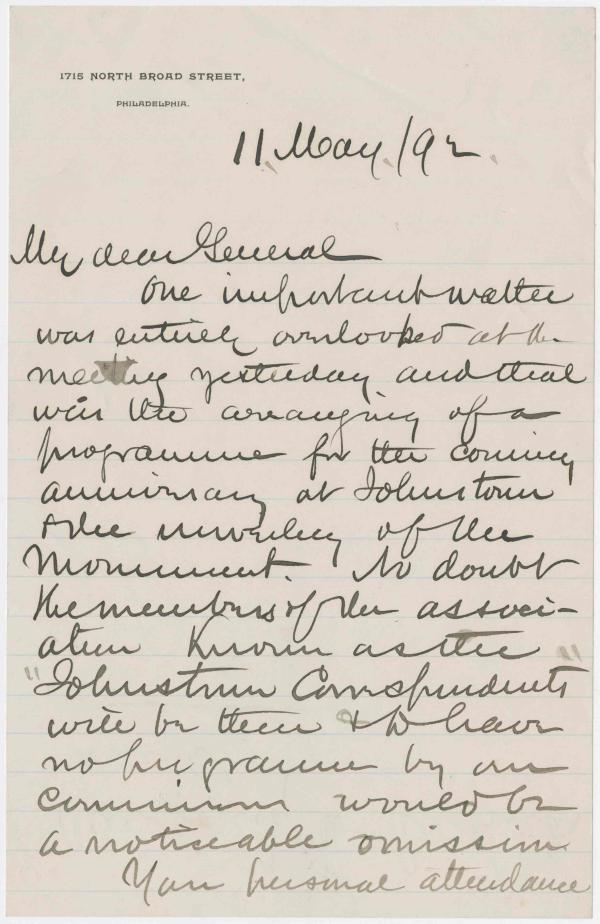 1715 NORTH BROAD STREET,
PHILADELPHIA.
11 May /92
My dear General
One important matter
was entirely overlooked at the
meeting yesterday and that
was the arranging of a
programme for the coming
anniversary at Johnstown
& the unveiling of the
Monument. No doubt
the members of the associ-
ation known as the
"Johnstown Correspondents"
will be there & to have
no programme by our
commission would be
a noticeable omission.
Your personal attendance